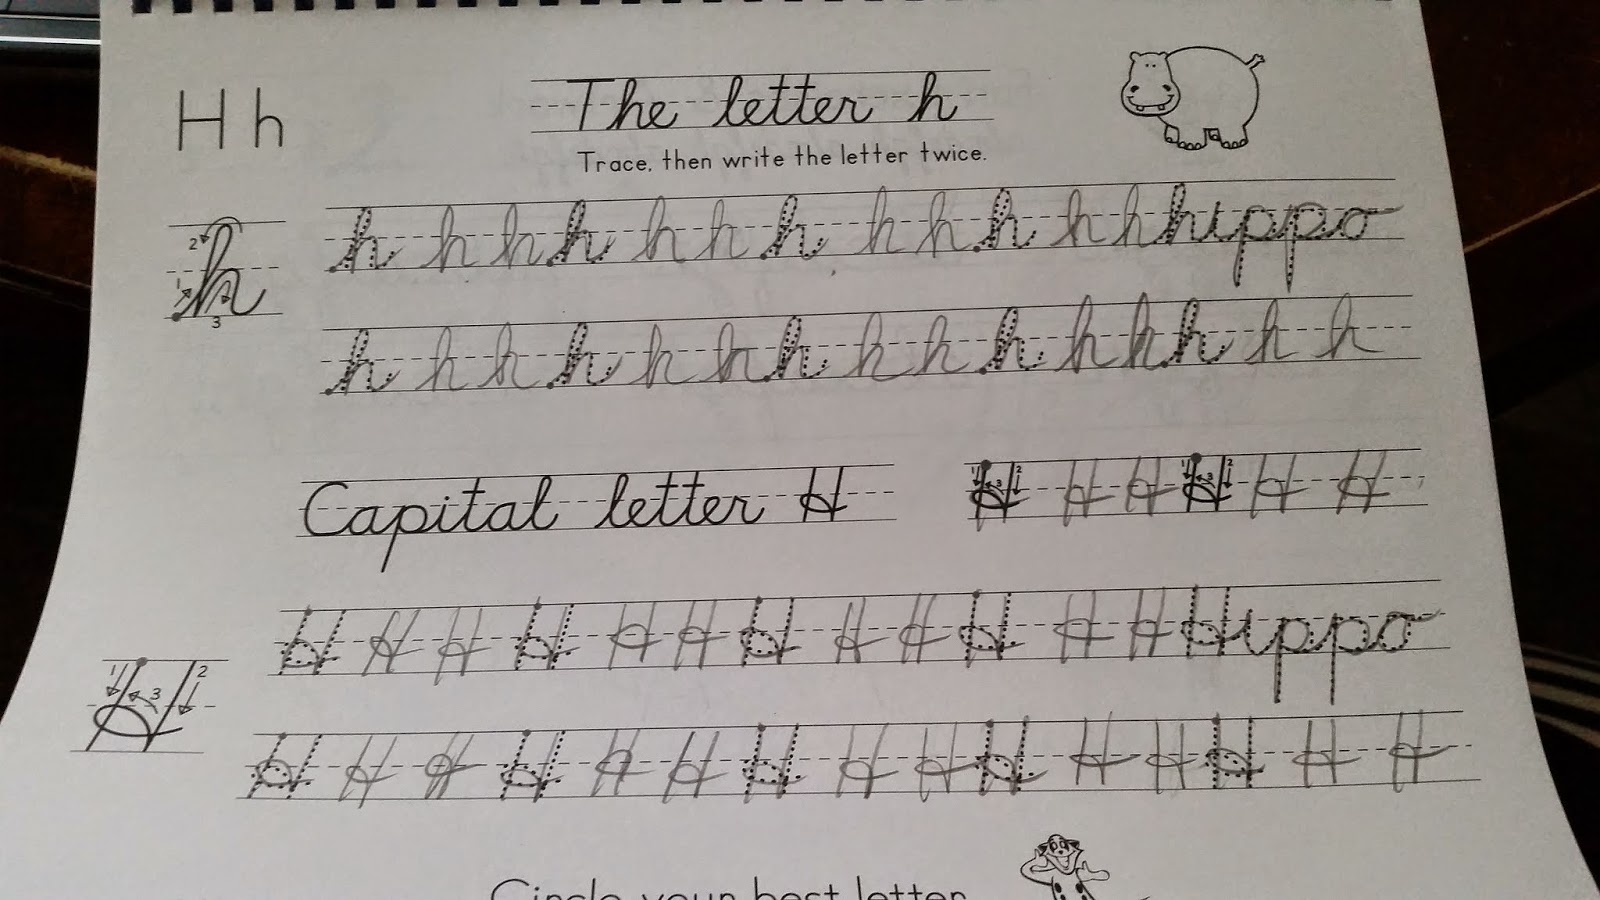 H h
The letter h
Trace, then write the letter twice.
1 2 3 h
h h h h h h h h h h h h hippo
h h h h h h h h h h h h h h h
Capital letter H
1 2 3 H H H 1 2 3 H H H
H H H H H H H H H H H H Hippo
1 2 3 H
H H H H H H H H H H H H H H H
Circle your best letter